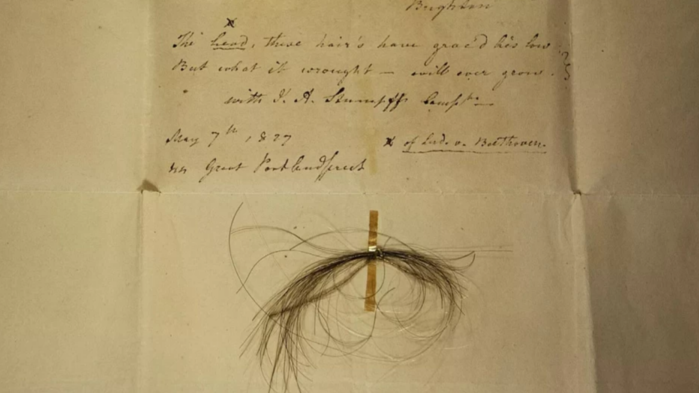 Brighton
The head, these hair's have grac'd lies low
But what it wrought — will ever grow.
with J. A. Stumpff's Compts
May 7th 1827
Great Portland Street
x of Lud. v. Beethoven.